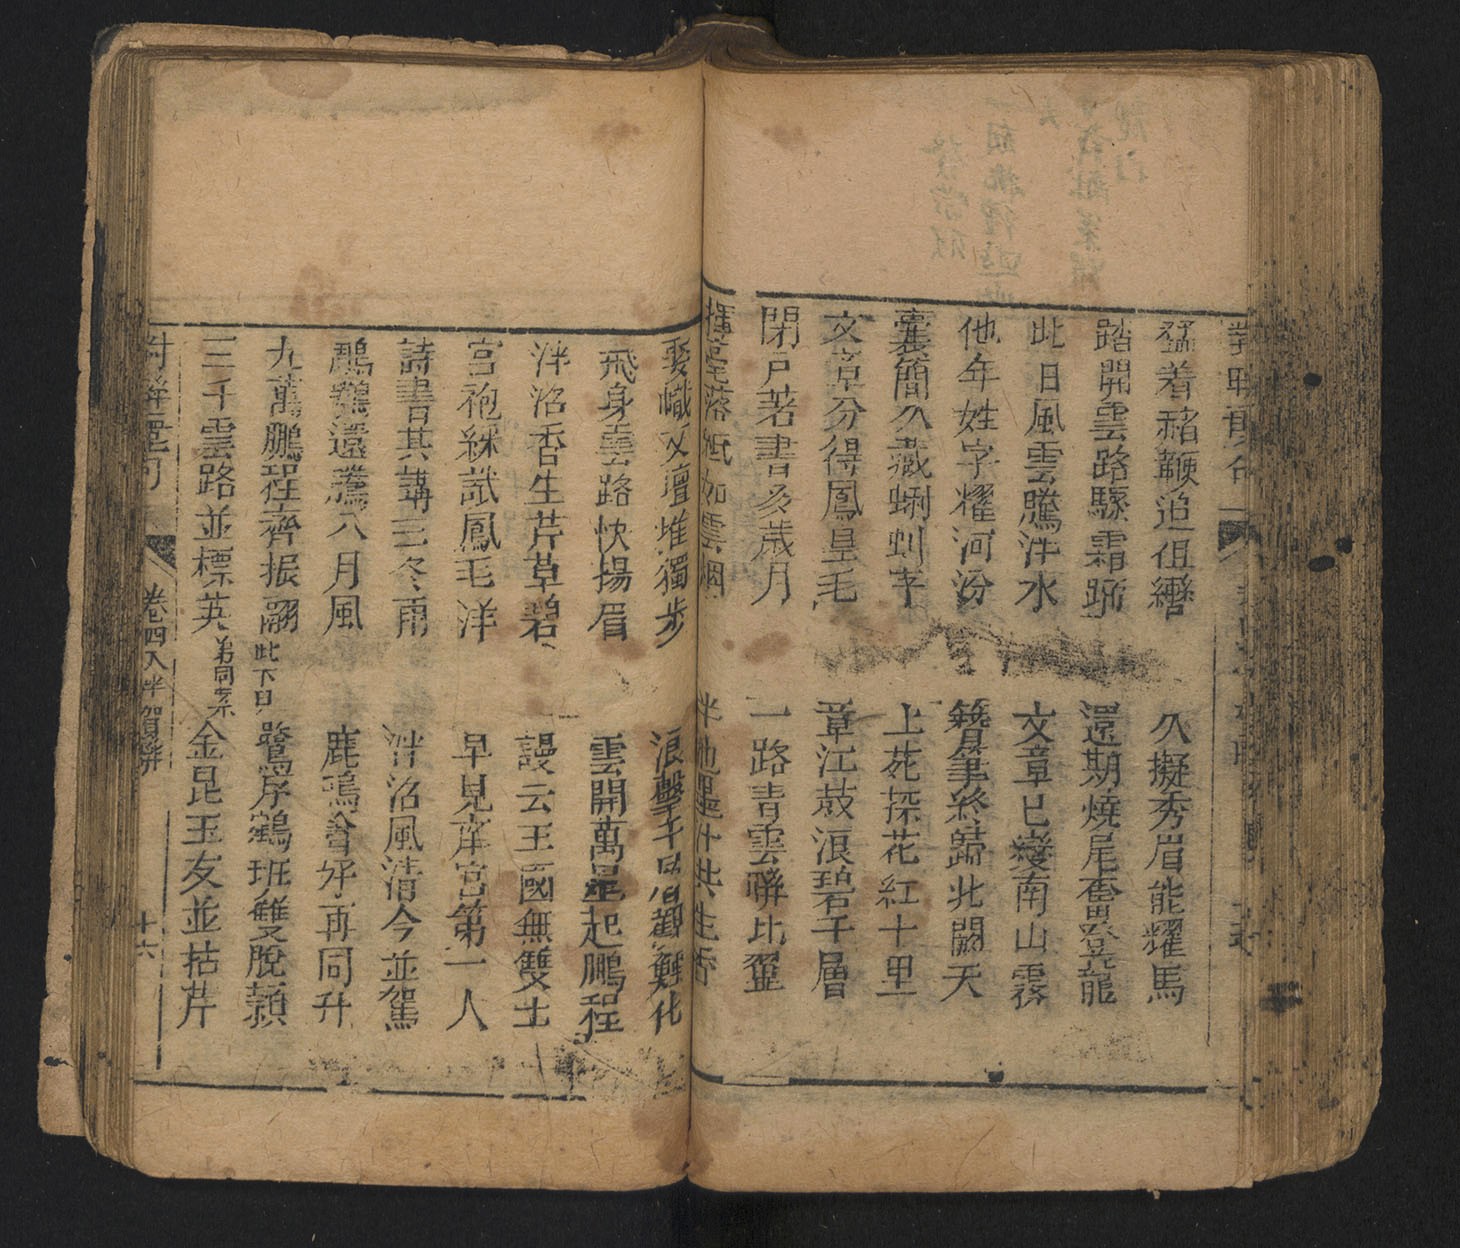 猛着祖鞭迨伹轡 久擬秀眉能耀馬
踏開雲路驟霜蹄 還期燒尾奮登龍
此日風雲騰泮水 文章已變南山霧
他年姓字耀河汾 簪筆終歸北闕天
囊簡久藏蝌蚪字 上苑探花紅十里
文章分得鳳皇毛 章江鼓浪碧千層
閉戶著書多歲月 一路青雲聯比翌
揮毫落紙如雲烟 半池墨汁共生香
娶幟文壇推獨步 浪擊千尋觀鯤化
飛身雲路快揚眉 雲開萬里起鵬程
泮沼香生芹草碧 謾云王國無雙士
宮袍綵試鳳毛洋 早見南宮第一人
詩書共講三冬雨 泮沼風清今並駕
鵰鶚還騰八月風 鹿鳴會好再同升
九萬鵬程齊振翮 此下兄 鷺序鵷班雙脫穎
三千雲路並標英 弟同案 金昆玉友並拮芹
卷四入泮賀聯 十六